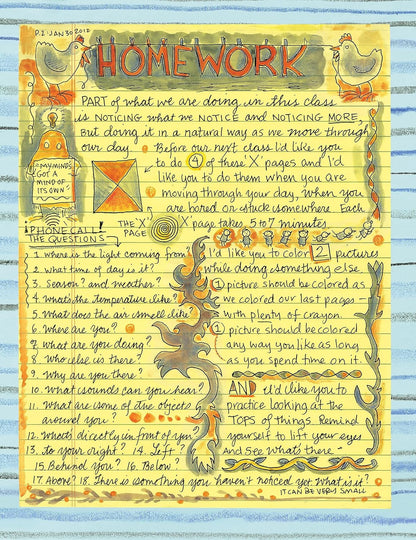 P.2 JAN 30 2012
HOMEWORK
PART of what we are doing in this class
is NOTICING what we NOTICE and NOTICING MORE,
But doing it in a natural way as we move through
our day. Before our next class I'd like you
to do 4 of these 'X' pages and I'd
like you to do them when you are
moving through your day, when you
are bored or stuck somewhere. Each
'X' page takes 5 to 7 minutes
"MY MIND'S
GOT A
MIND OF
ITS OWN"
THE 'X'
PAGE
PHONE CALL!
THE QUESTIONS
1. where is the light coming from
2. what time of day is it?
3. Season? and weather?
4. What's the Temperature like?
5. What does the air smell like?
6. Where are you?
7. What are you doing?
8. Who else is there?
9. Why are you there?
10. What sounds can you hear?
11. What are some of the objects
around you?
12. What's directly in front of you
13. To your right? 14. Left?
15. Behind you? 16. Below?
17. Above? 18. There is something you haven't noticed yet. What is it?
IT CAN BE VERY SMALL
I'd like you to color 2 pictures
while doing something else
1 picture should be colored as
we colored our last pages -
with plenty of crayon.
1 picture should be colored
any way you like as long
as you spend time on it.
AND I'd like you to
practice looking at the
TOPS of things. Remind
yourself to lift your eyes
and see what's there -